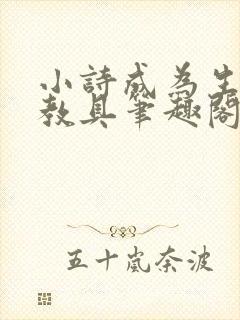 小詩成為生
教具筆趣閣
五十嵐奈波